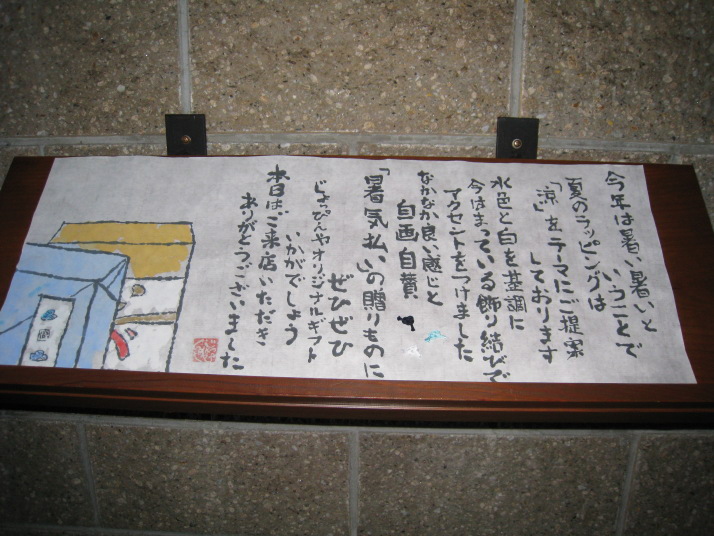 今年は暑い暑いと
いうことで
夏のラッピングは
「涼」をテーマにご提案
しております
水色と白を基調に
今はまっている飾り結びで
アクセントをつけました
なかなか良い感じと
自画自賛
「暑気払い」の贈りものに
ぜひぜひ
じょぴんやオリジナルギフト
いかがでしょう
本日はご来店いただき
ありがとうございました